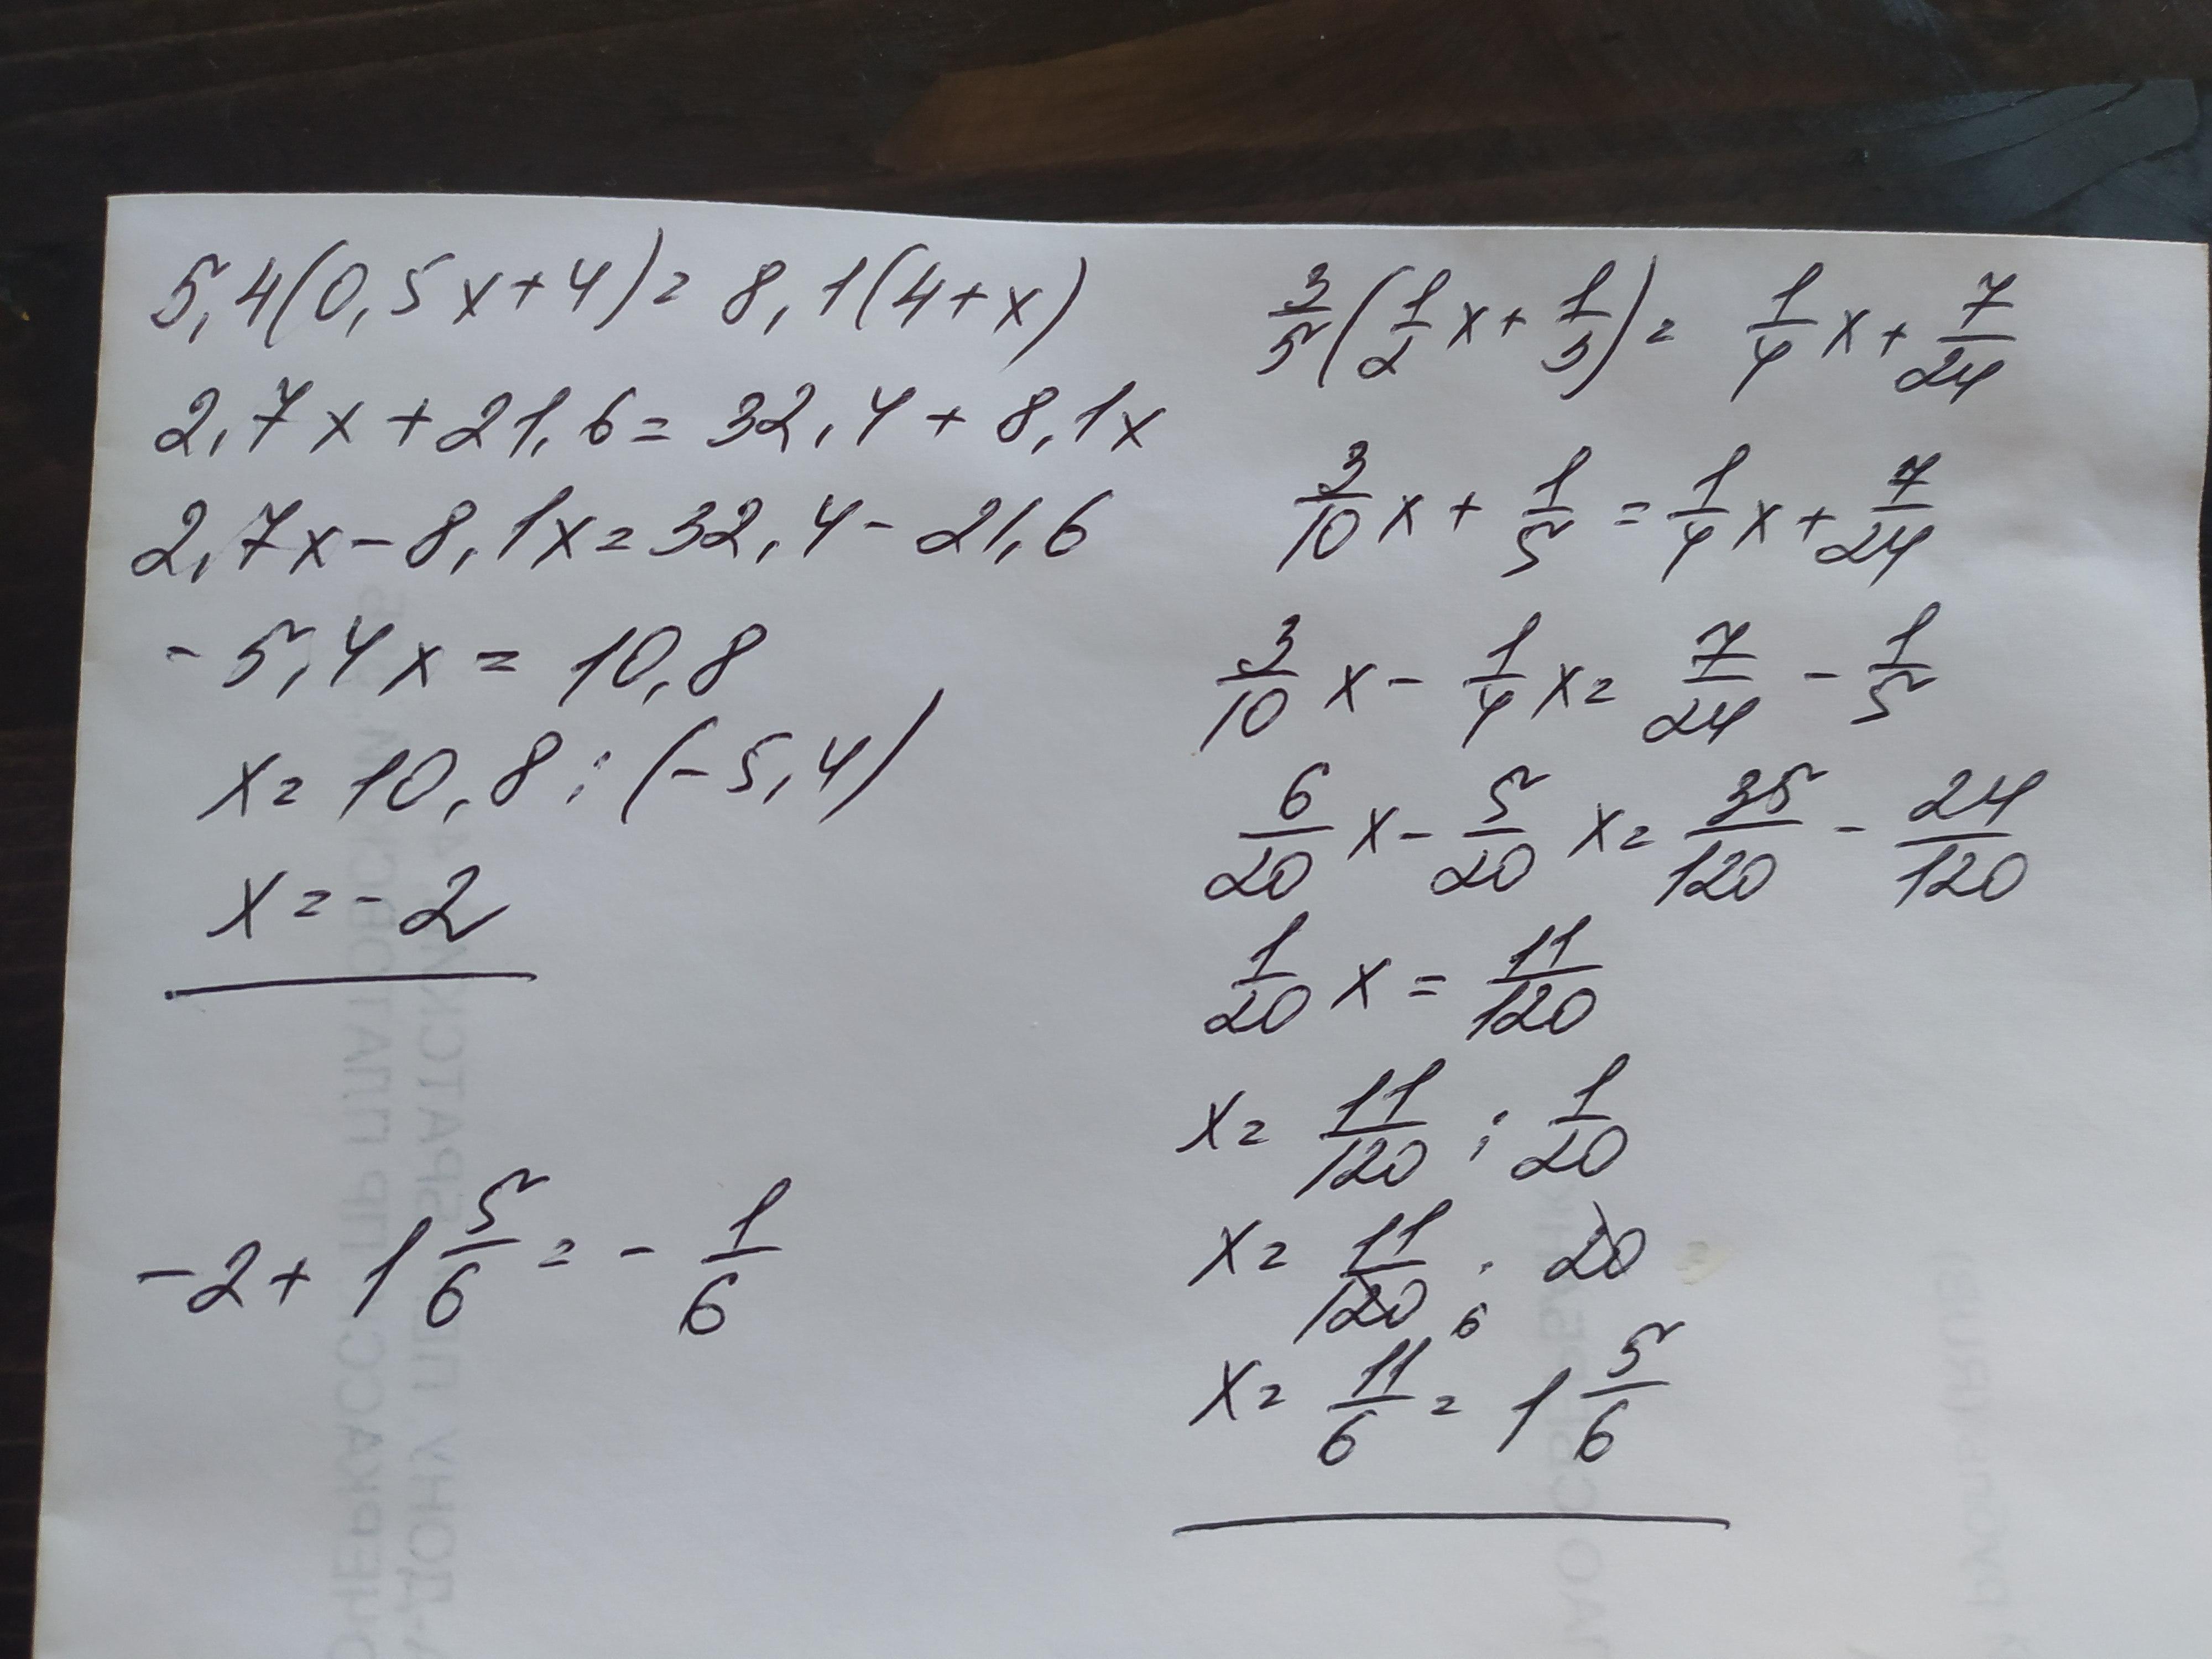 5,4(0,5x+4)=8,1(4+x)
2,7x+21,6=32,4+8,1x
2,7x-8,1x=32,4-21,6
-5,4x=10,8
x=10,8:(-5,4)
x=-2
-2+1 5/6=-1/6
3/5(1/2x+1/3)=1/4x+7/24
3/10x+1/5=1/4x+7/24
3/10x-1/4x=7/24-1/5
6/20x-5/20x=35/120-24/120
1/20x=11/120
x=11/120:1/20
x=11/120·20
6
x=11/6=1 5/6